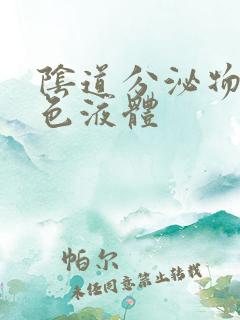 陰道分泌物
色液體
帕尔
未经同意禁止转载